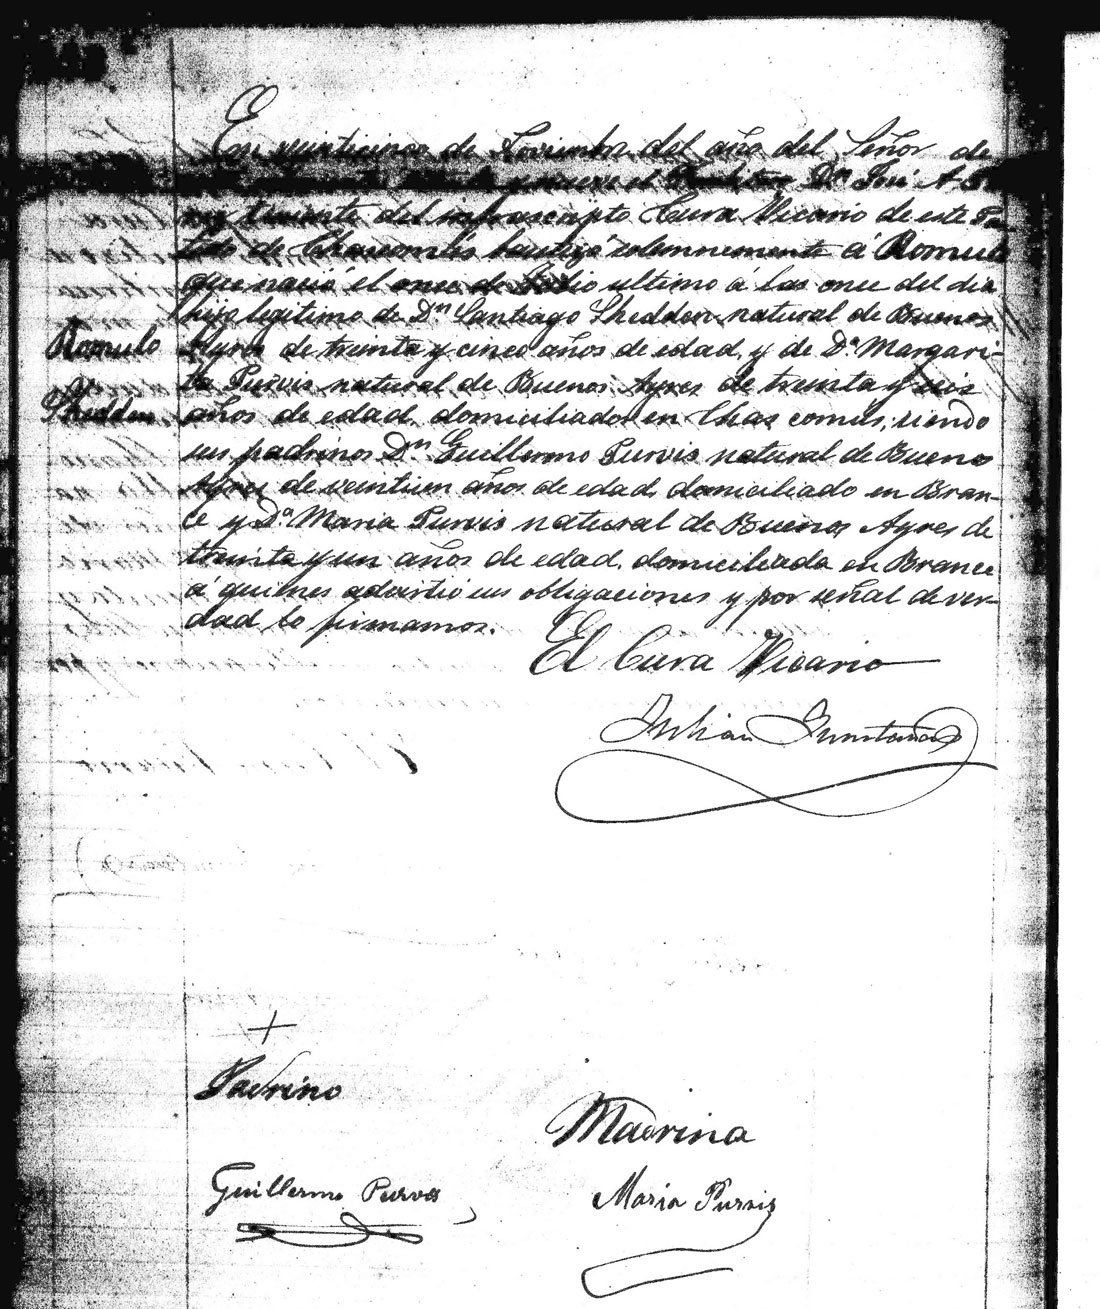 En veinticinco de Noviembre del año del Señor de
y nueve el Presbítero Dn José A.
teniente del infrascripto Cura Vicario de este Par-
tido de Chascomús bautizó solemnemente á Romulo
que nació el once de Julio ultimo á las once del dia
hijo legitimo de Dn Santiago Shedden natural de Buenos
Romulo
Ayres de treinta y cinco años de edad, y de Da Margari-
ta Purvis natural de Buenos Ayres de treinta y seis
Shedden.
años de edad, domiciliados en Chascomús, siendo
sus padrinos Dn Guillermo Purvis natural de Buenos
Ayres de veintiun años de edad, domiciliado en Bran-
ce y Da Maria Purvis natural de Buenos Ayres de
treinta y un años de edad, domiciliada en Brance
á quienes advirtió sus obligaciones y por señal de ver-
dad lo firmamos.
El Cura Vicario
Julian Quintana
Padrino
Madrina
Guillermo Purves
Maria Purvis